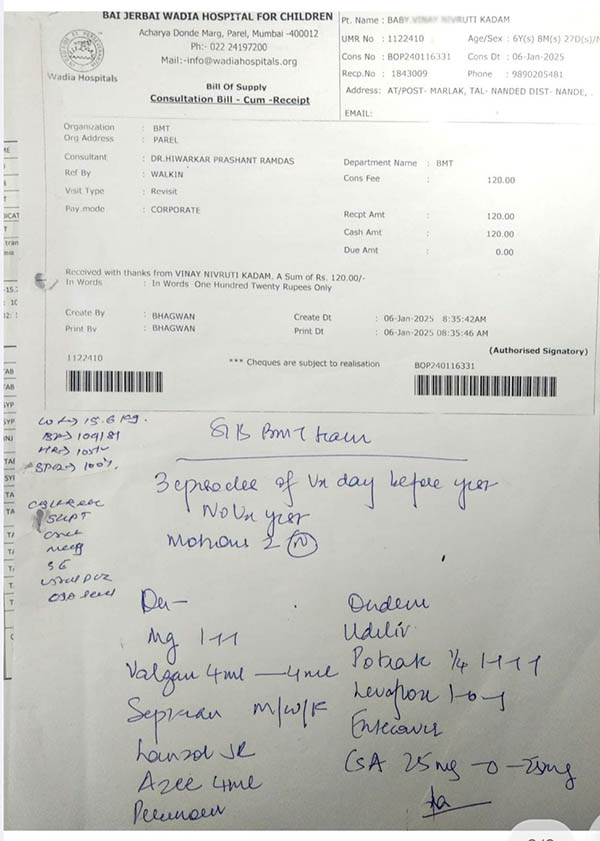 BAI JERBAI WADIA HOSPITAL FOR CHILDREN
Acharya Donde Marg, Parel, Mumbai -400012
Ph:- 022 24197200
Mail:-info@wadiahospitals.org
Wadia Hospitals
Bill Of Supply
Consultation Bill - Cum -Receipt
Pt. Name : BABY VINAY NIVRUTI KADAM
UMR No : 1122410 Age/Sex : 6Y(s) 8M(s) 27D(s)/
Cons No : BOP240116331 Cons Dt : 06-Jan-2025
Recp.No : 1843009 Phone : 9890205481
Address: AT/POST- MARLAK, TAL- NANDED DIST- NANDE, .
EMAIL:
Organization : BMT
Org Address : PAREL
Consultant : DR.HIWARKAR PRASHANT RAMDAS
Ref By : WALKIN
Visit Type : Revisit
Pay mode : CORPORATE
Department Name : BMT
Cons Fee : 120.00
Recpt Amt : 120.00
Cash Amt : 120.00
Due Amt : 0.00
Received with thanks from VINAY NIVRUTI KADAM. A Sum of Rs. 120.00/-
In Words : In Words One Hundred Twenty Rupees Only
Create By : BHAGWAN Create Dt : 06-Jan-2025 8:35:42AM
Print By : BHAGWAN Print Dt : 06-Jan-2025 08:35:46 AM
(Authorised Signatory)
1122410 *** Cheques are subject to realisation BOP240116331
Wt→ 15.6 kg.
BP→ 109/81
SPO2→ 100%
S/B BMT team
3 episodes of Vx day before yest
No Vx yest
Motions 2 N
Mg 1-1-1
Valgan 4ml — 4ml
Septran M/W/F
Lanzol JR
Azee 4ml
Ondem
Udiliv
Potrak 1/4 1-1-1-1
Levoflox 1-0-1
Entecavir
CSA 25mg -0 -25mg